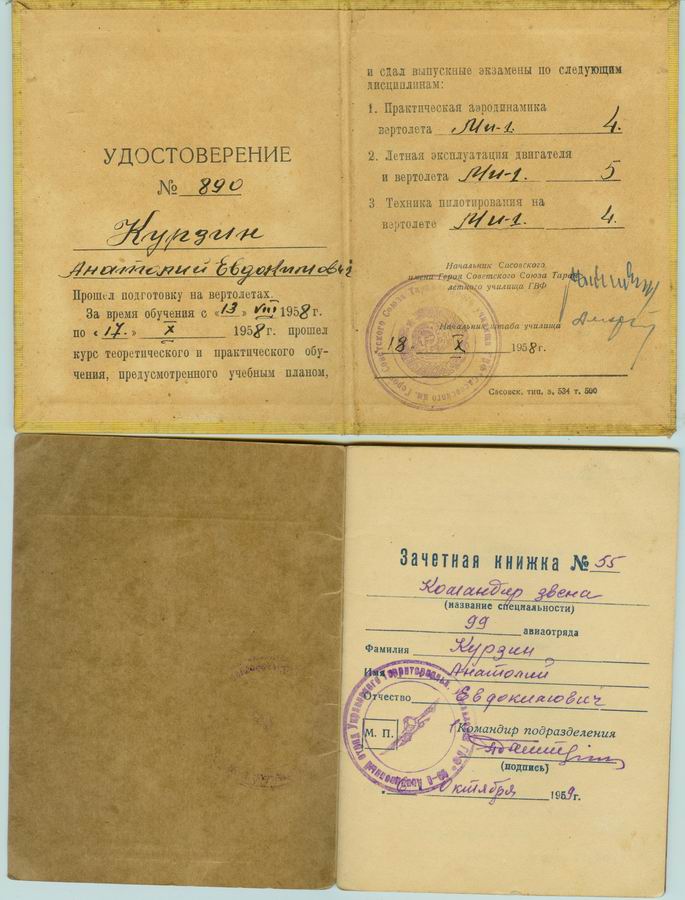 УДОСТОВЕРЕНИЕ
№ 890
Курдин
Анатолий Евдокимович
Прошел подготовку на вертолетах.
За время обучения с «13» VIII 1958 г.
по «17.» X 1958 г. прошел
курс теоретического и практического обу-
чения, предусмотренного учебным планом,
и сдал выпускные экзамены по следующим
дисциплинам:
1. Практическая аэродинамика
вертолета Ми-1. 4.
2. Летная эксплуатация двигателя
и вертолета Ми-1. 5
3 Техника пилотирования на
вертолете Ми-1. 4.
Начальник Сасовского
имени Героя Советского Союза Тарана
летного училища ГВФ
Начальник штаба училища
18 X 1958 г.
Сасовск. тип. з. 534 т. 500
Зачетная книжка № 55
Командир звена
(название специальности)
99 авиаотряда
Фамилия Курдин
Имя Анатолий
Отчество Евдокимович
М. П.
Командир подразделения
(подпись)
Октября 1959 г.